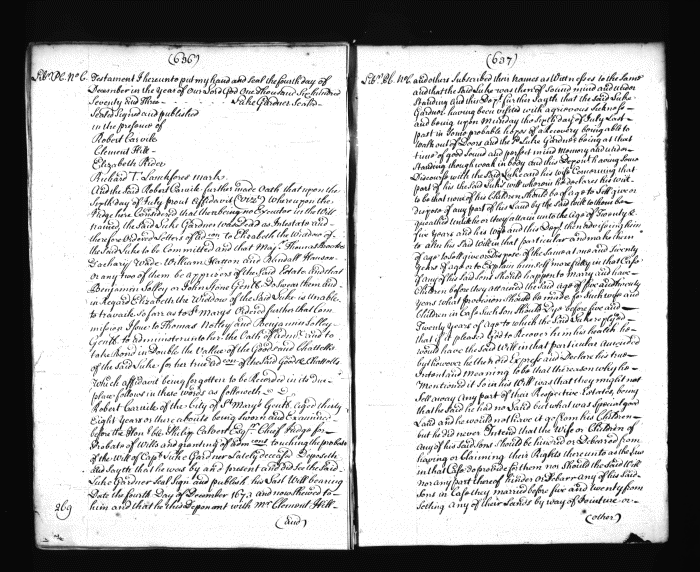 (636)
Testament I hereunto put my hand and seal the fourth day of
December in the Year of Our Lord God One Thousand Six hundred
Seventy and three Luke Gardner Sealed
Sealed Signed and published
in the presence of
Robert Carvile
Clement Hill
Elizabeth Rider
Richard T. Lanckfores mark
And the said Robert Carvile further made Oath that upon the
Sixth day of July prout Affidavit Whereupon the
Judge here Considered that there being no Executor in the Will
named, the said Luke Gardner was dead as Intestate and
therefore Ordered Letters of ad:con to Elizabeth the Widdow of
the said Luke to be Committed and that May Thomas
Zachary Wade William Hatton and Randall Hanson
or any two of them be apprizors of the said Estate and that
Benjamin Solley or John Stone Gentl. do swear them and
in Regard Elizabeth the Widdow of the said Luke is unable
to travaile so far as to St. Marys Ordered further that Com
mission Issue to Thomas Notley and Benjamin Solley
Gentl. to administer to her the Oath of adm: and to
take bond in double the Value of the Goods and Chattells
of the said Luke for her true ad:con of the said Goods & Chattells
Which affidavit being forgotten to be Recorded in its due
place follows in these words as followeth
Robert Carvile of the City of St. Mary's Gentl. aged thirty
Eight Years or thereabouts being sworn and Examined
before the Honble Philip Calvert Esqr. Chief Judge for
Probate of Wills and granting of Adm:cons touching the probate
of the Will of Capt. Luke Gardner Lately deceased Deposeth
and sayth that he was by and present and did see the said
Luke Gardner Seal Sign and publish his said Will bearing
Date the fourth Day of December 1673 and now shewed to
him and that he this Deponant with Mr. Clement Hill
269
(and)
(637)
and others Subscribed their names as Witnesses to the same
and that the said Luke was then of Sound mind and under
standing and this Depont. further sayth that the said Luke
Gardner having been visited with a grievous Sickness
and being upon Munday the Sixth day of July Last
past in some probable hopes of a Recovery being able to
walk out of Doors and the sd. Luke Gardner being at that
time of good sound and perfect mind memory and under
standing though weak in body and this Depont. having some
Discourse with the said Luke and his wife Concerning that
part of his the said Luke's will wherein he declares his will
to be that none of his Children should be of age to Sell give or
dispose of any part of his Land by the said Will to them be
queathed untill he or they attain unto the Age of Twenty &
five Years and his Wife and this Depont. then advising him
to alter his said Will in that particular and make them
of age to Sell give or dispose of the same at one and Twenty
Years of age or to Explain himself more fully in that Case
if any of his said Sons should happen to Mary and have
Children before they attained the said age of five and twenty
Years what provision should be made for such wife and
Children in Case such Son should Dye before five and
Twenty Years of age to which the said Luke replyed
that if it pleased God to Recover him his health he
would have the said Will in that particular amended
but however he then did Express and Declare his true
Intent and meaning to be that the reason why he
Mentioned it so in his Will was that they might not
Sell away Any part of that Respective Estates, being
that he said he had no Land but what was Especial good
Land and he would not have it go from his Children
but he never Intend that the Wife or Children of
Any of his said Sons should be hindred or Debarred from
having or Claiming their Rights thereunto as the Law
in that Case do provide for them nor should the said Will
nor any part thereof hinder or Debarr any of his said
Sons in Case they maried before five and twenty from
Setting any of their Lands by way of Jointure or
(other)